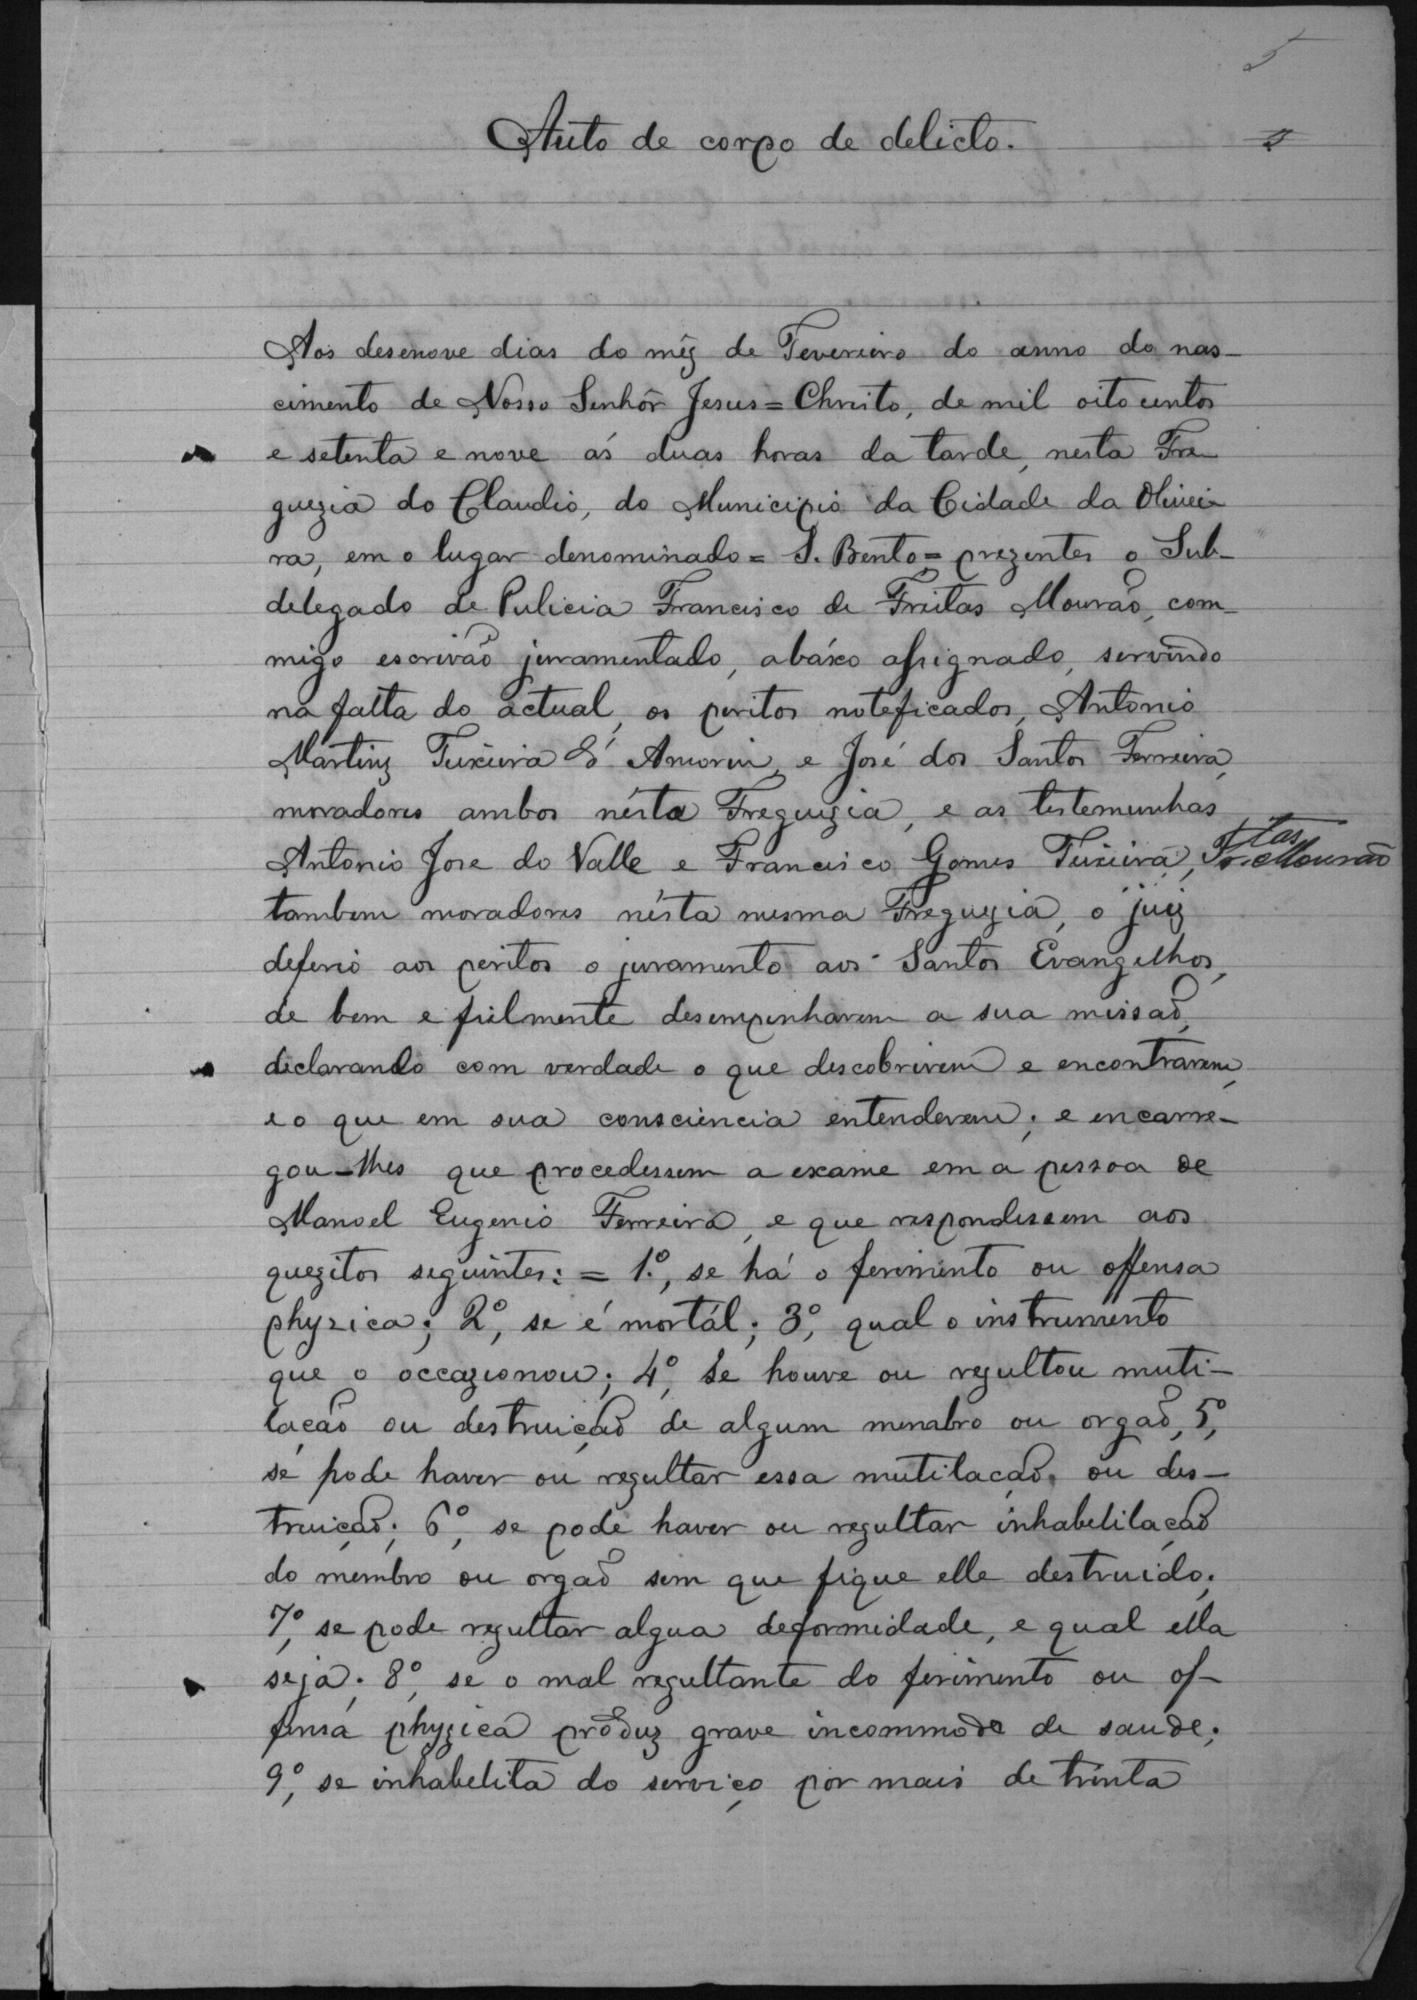 5
Auto de corpo de delicto.
Aos desenove dias do mêz de Fevereiro do anno do nas-
cimento de Nosso Senhôr Jesus=Christo, de mil oito centos
e setenta e nove ás duas horas da tarde, nesta Fre
guezia do Claudio, do Municipio da Cidade da Olivei
ra, em o lugar denominado = S. Bento = prezentes o Sub-
delegado de Pulicia Francisco de Freitas Mourão, com-
migo escrivão juramentado, abáixo assignado, servindo
na falta do actual, os peritos noteficados, Antonio
Martinz Teixeira d'Amorim, e José dos Santos Ferreira,
moradores ambos nésta Freguezia, e as testemunhas
Antonio Jose do Valle e Francisco Gomes Teixeira,
Frtas Mourão
tambem moradores nésta mesma Freguezia, o juiz
deferio aos peritos o juramento aos Santos Evangelhos,
de bem e fielmente desempenharem a sua missão,
declarando com verdade o que descobrirem e encontrarem,
e o que em sua consciencia entenderem; e encarre-
gou-lhes que procedessem a exame em a pessoa de
Manoel Eugenio Ferreira, e que respondessem aos
quezitos seguintes: = 1.º, se há o ferimento ou offensa
physica; 2º, se é mortál; 3º, qual o instrumento
que o occazionou; 4º, se houve ou rezultou muti-
lação ou destruição de algum menbro ou orgaõ, 5º,
se pode haver ou rezultar essa mutilação ou des-
truição; 6º, se pode haver ou rezultar inhabelitação
do membro ou orgaõ sem que fique elle destruido;
7º, se pode rezultar algua deformidade, e qual ella
seja; 8º, se o mal rezultante do ferimento ou of-
fensa phyzica prôduz grave incommodo de saude;
9º, se inhabelita do serviço por mais de trinta